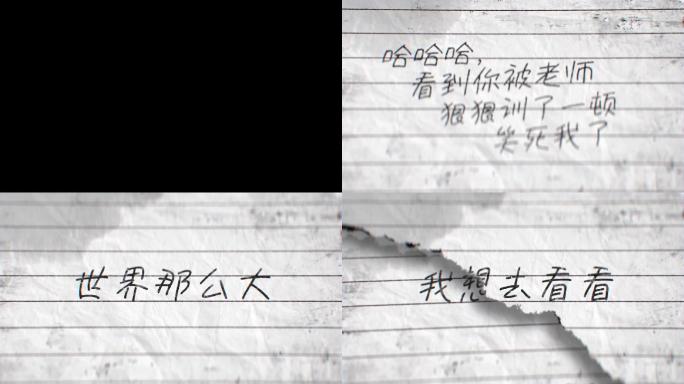 哈哈哈,
看到你被老师
狠狠训了一顿
笑死我了
世界那么大
我想去看看